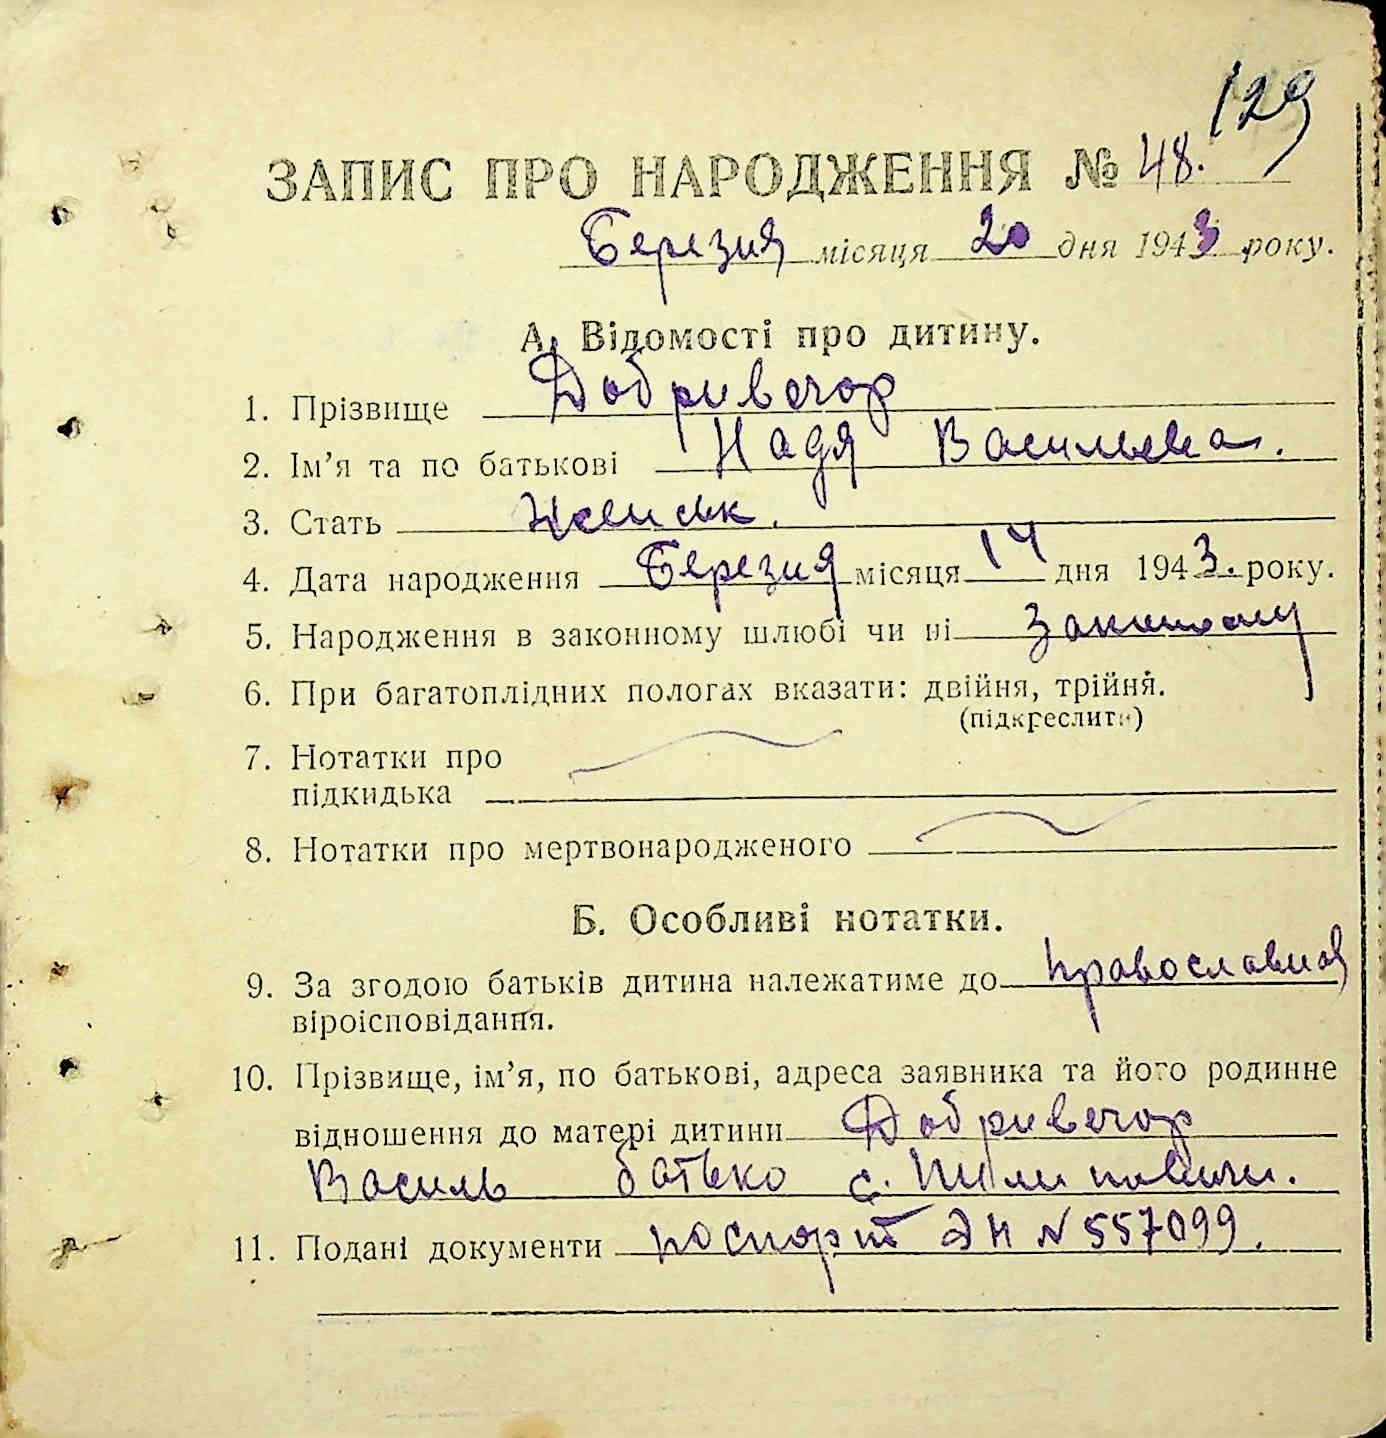 129
ЗАПИС ПРО НАРОДЖЕННЯ № 48.
Березня місяця 20 дня 1943 року.
А. Відомості про дитину.
1. Прізвище Добривечор
2. Ім'я та по батькові Надя Васильевна.
3. Стать Женськ.
4. Дата народження Березня місяця 14 дня 1943. року.
5. Народження в законному шлюбі чи ні Законному
6. При багатоплідних пологах вказати: двійня, трійня.
(підкреслити)
7. Нотатки про
підкидька
8. Нотатки про мертвонародженого
Б. Особливі нотатки.
9. За згодою батьків дитина належатиме до православної
віроісповідання.
10. Прізвище, ім'я, по батькові, адреса заявника та його родинне
відношення до матері дитини Добривечор
Василь батько с. Пилиповичи.
11. Подані документи поспорт ЭН N 557099.